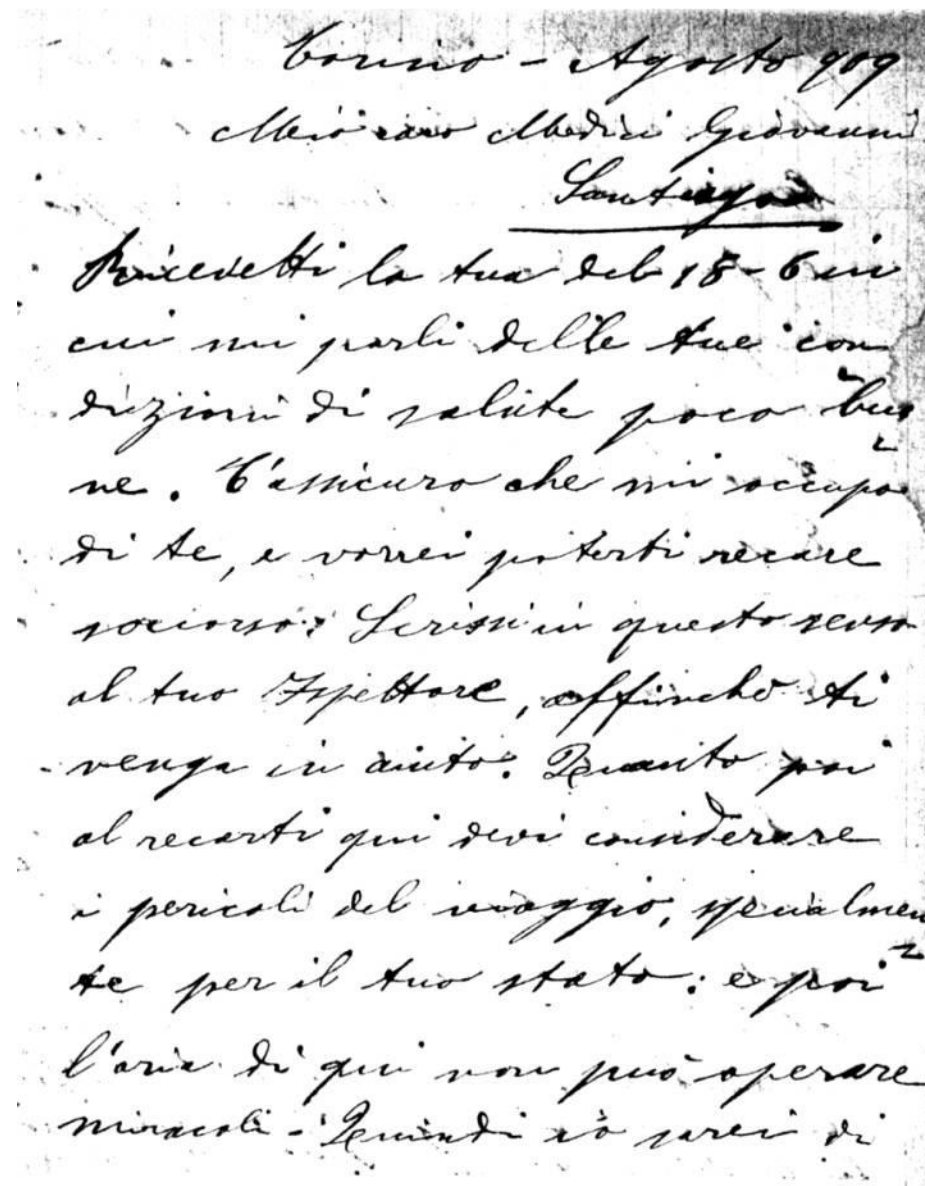 Torino - Agosto 909
Mio caro Medici Giovanni
Santiago
Ricevetti la tua del 15-6 in
cui mi parli delle tue con
dizioni di salute poco buo
ne. T'assicuro che mi occupo
di te, e vorrei poterti recare
soccorso: Scrissi in questo senso
al tuo Ispettore, affinchè ti
venga in aiuto. Quanto poi
al recarti qui devi considerare
i pericoli del viaggio, specialmen
te per il tuo stato: e poi
l'aria di qui non può operare
miracoli - Quindi io sarei di